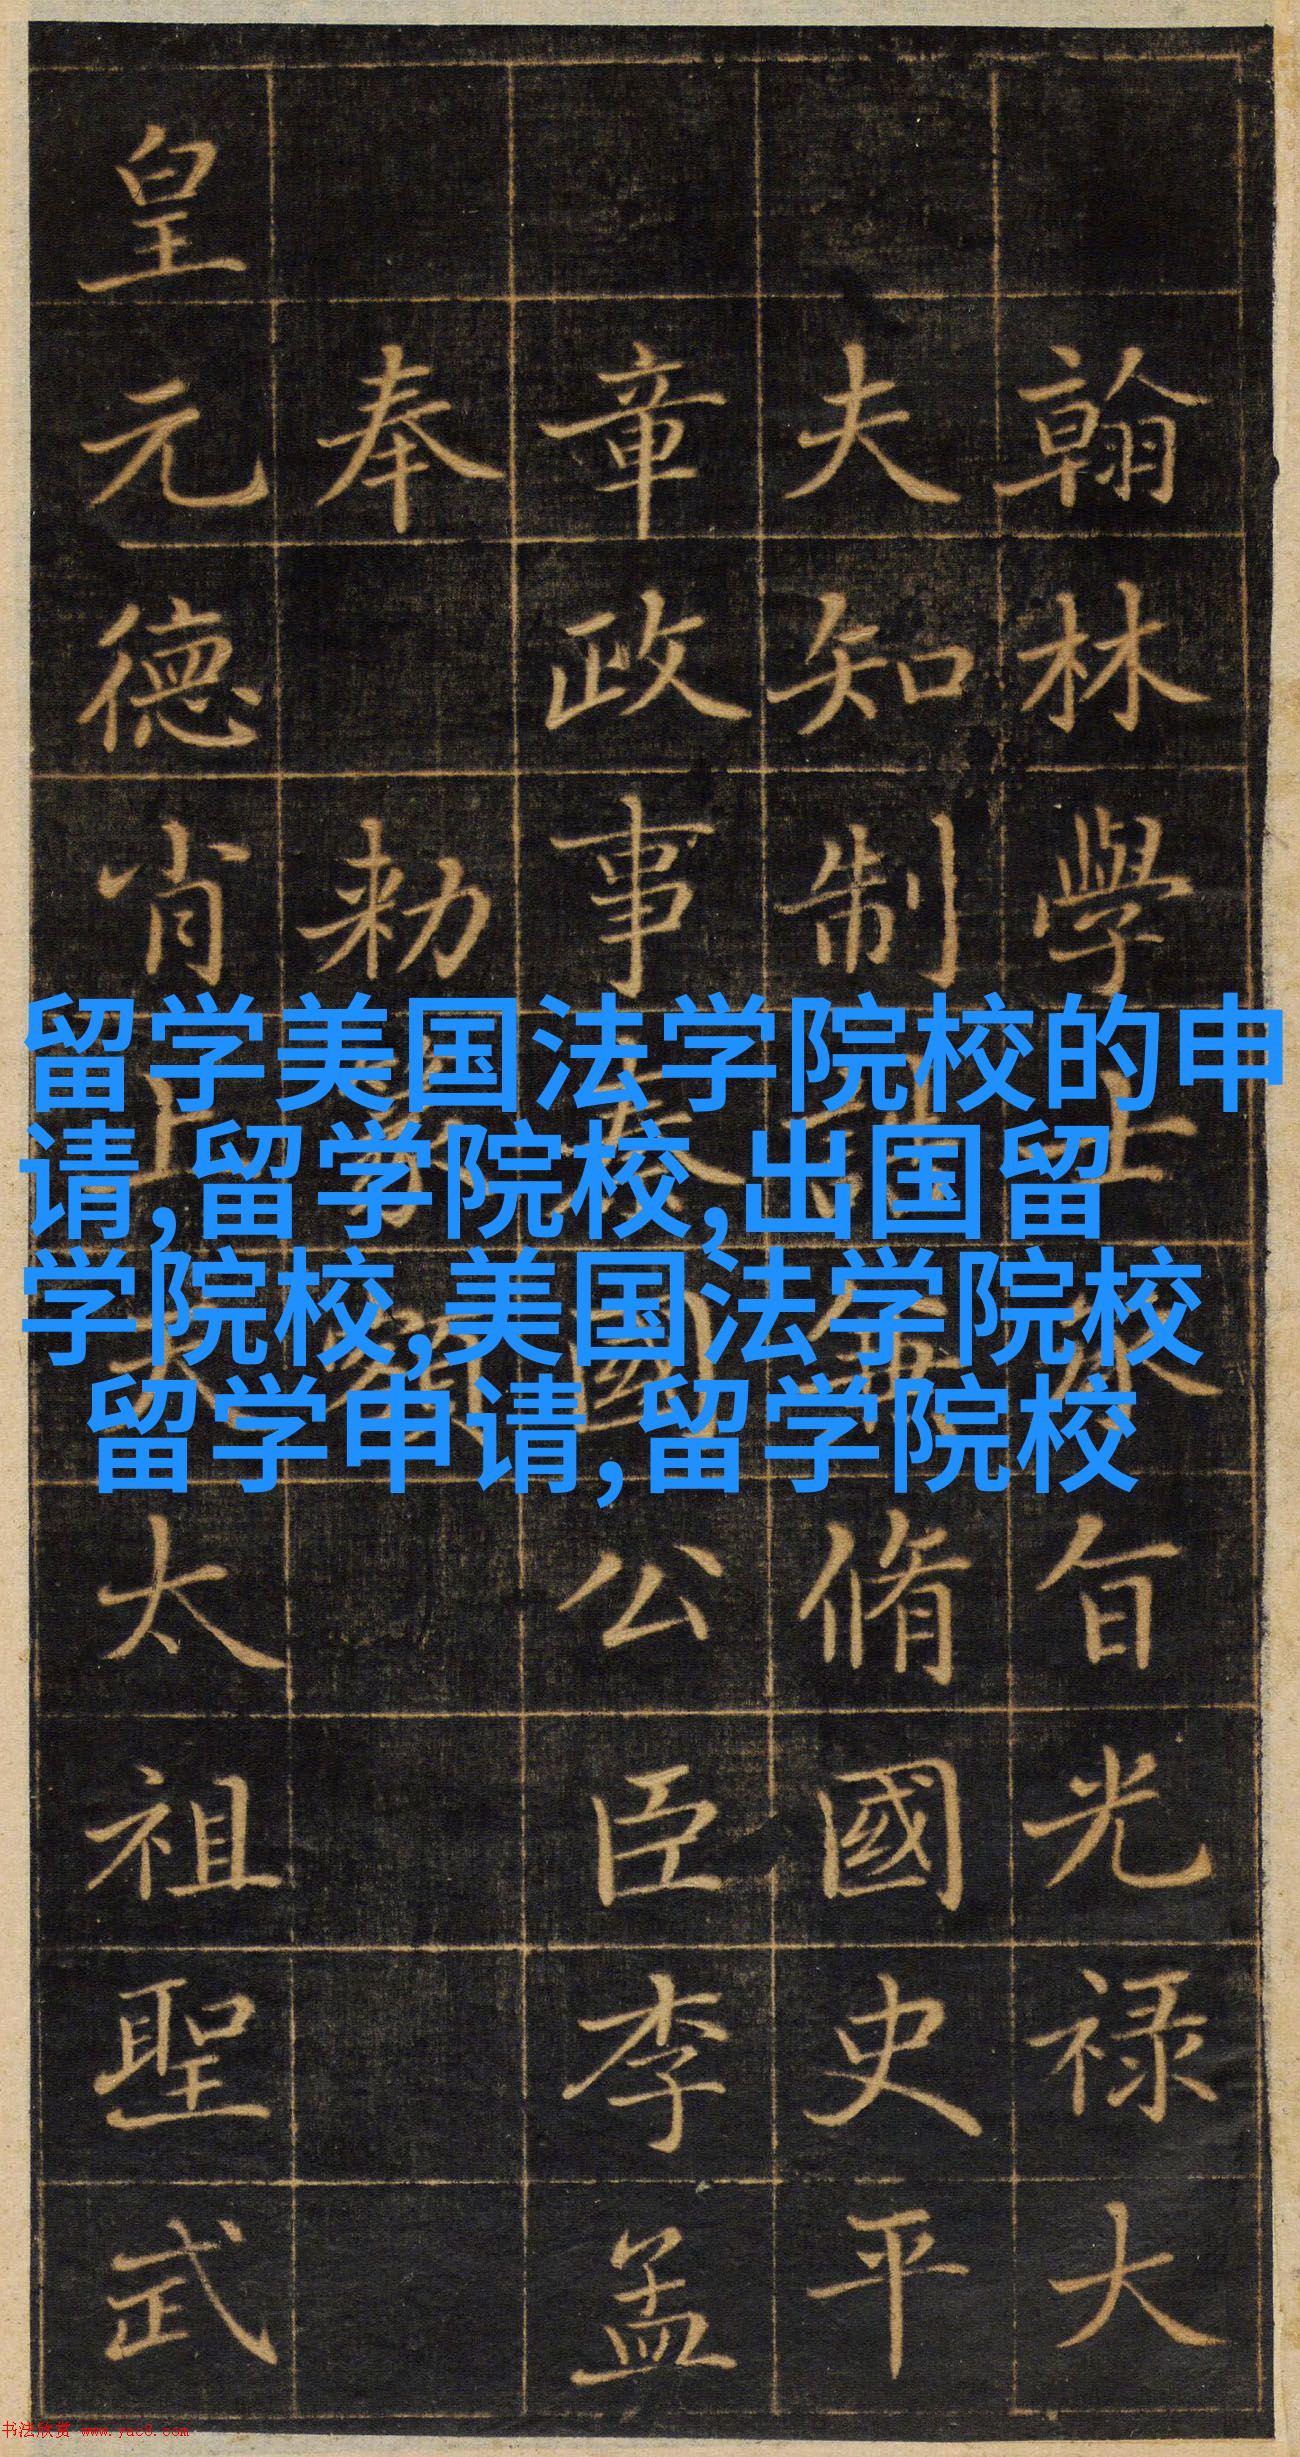 翰林學士旨光禄大
夫知制脩國史平
章政事國公臣李孟
奉勑
皇元德肖上太祖聖武
留学美国法学院校的申
请,留学院校,出国留
学院校,美国法学院校
留学申请,留学院校
书法欣赏 www.yac8.com